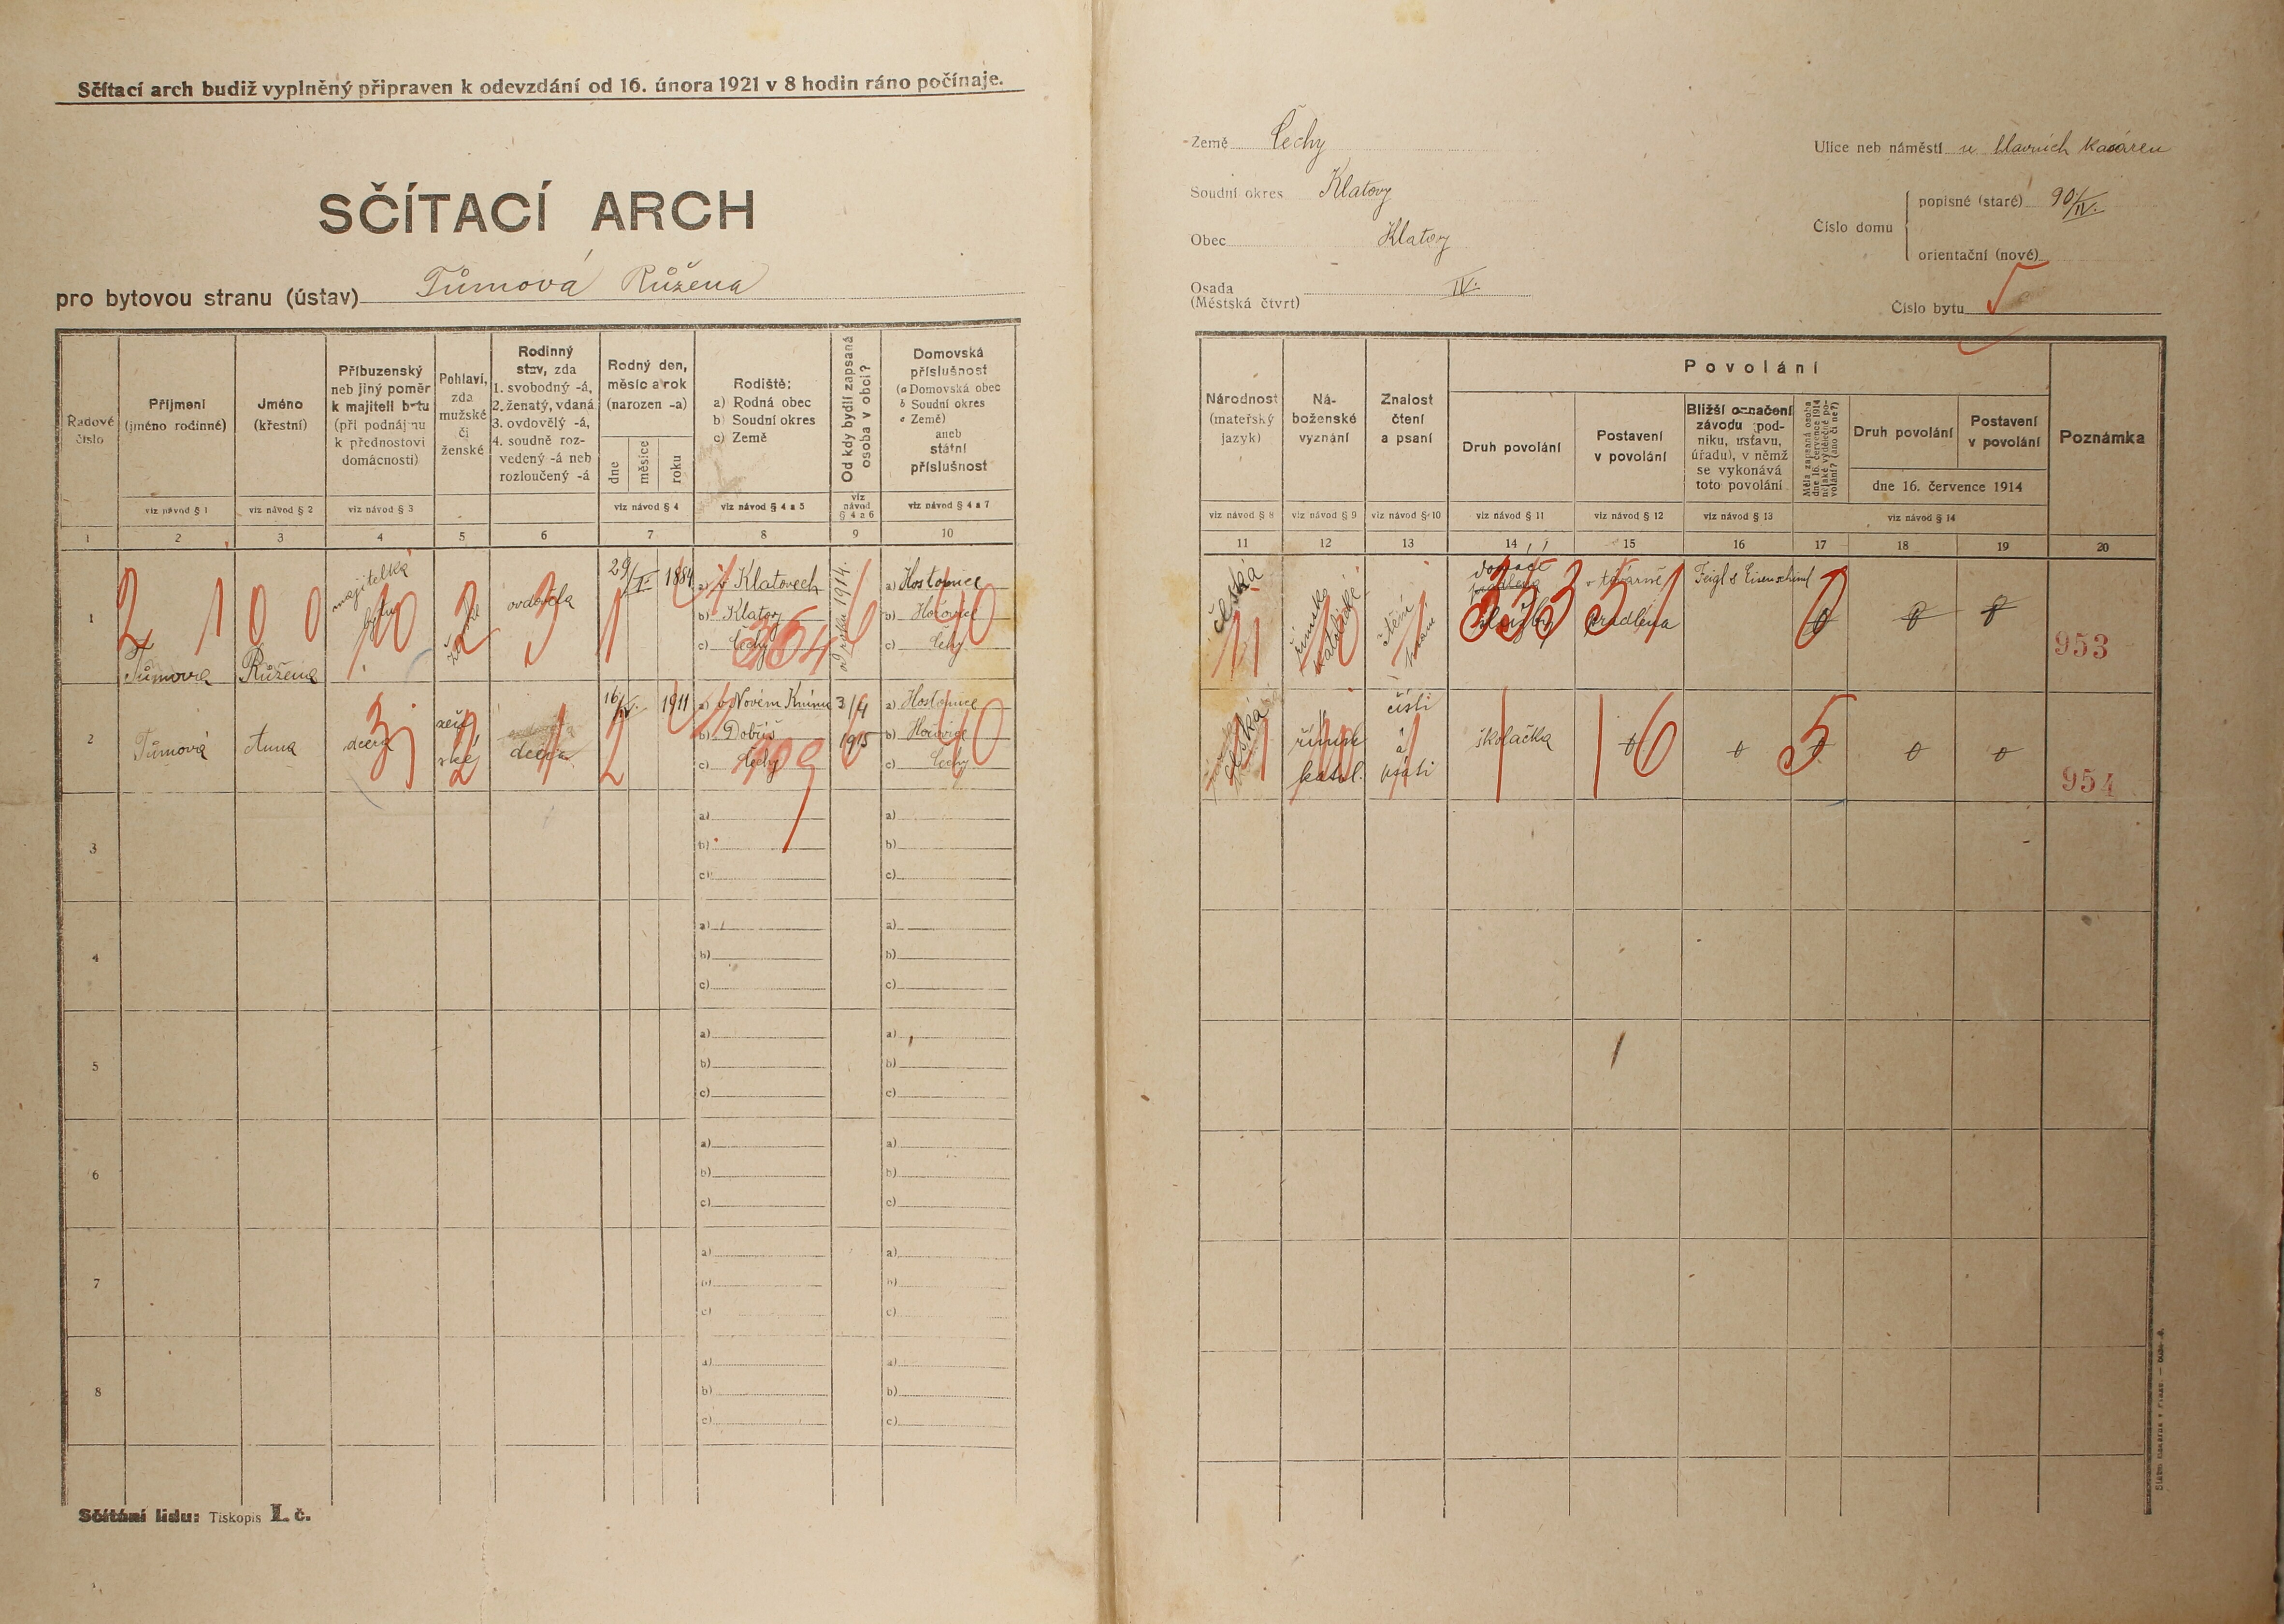 Sčítací arch budiž vyplněný připraven k odevzdání od 16. února 1921 v 8 hodin ráno počínaje.
SČÍTACÍ ARCH
pro bytovou stranu (ústav) Tůmová Růžena
Země Čechy
Soudní okres Klatovy
Obec Klatovy
Osada
(Městská čtvrt) IV.
Ulice neb náměstí u hlavních kasáren
Číslo domu
popisné (staré) 90/IV.
orientační (nové)
Číslo bytu 5
Řadové číslo
Příjmení (jméno rodinné)
Jméno (křestní)
Příbuzenský neb jiný poměr k majiteli bytu (při podnájmu k přednostovi domácnosti)
Pohlaví, zda mužské či ženské
Rodinný stav, zda 1. svobodný -á, 2. ženatý, vdaná 3. ovdovělý -á, 4. soudně rozvedený -á neb rozloučený -á
Rodný den, měsíc a rok (narozen -a)
dne měsíce roku
Rodiště: a) Rodná obec b) Soudní okres c) Země
Od kdy bydlí zapsaná osoba v obci?
Domovská příslušnost (a Domovská obec b Soudní okres c Země) aneb státní příslušnost
viz návod § 1 viz návod § 2 viz návod § 3 viz návod § 4 viz návod § 4 a 5 viz návod § 4 a 6 viz návod § 4 a 7
1 2 3 4 5 6 7 8 9 10
Národnost (mateřský jazyk)
Náboženské vyznání
Znalost čtení a psaní
Povolání
Druh povolání
Postavení v povolání
Bližší označení závodu (podniku, ústavu, úřadu), v němž se vykonává toto povolání
Měla zapsaná osoba dne 16. července 1914 nějaké výdělečné povolání? (ano či ne?)
Druh povolání
Postavení v povolání
dne 16. července 1914
Poznámka
viz návod § 8 viz návod § 9 viz návod § 10 viz návod § 11 viz návod § 12 viz návod § 13 viz návod § 14
11 12 13 14 15 16 17 18 19 20
1 Tůmova Růžena majitelka bytu ženské ovdovělá 29/I. 1884
a) v Klatovech
b) Klatovy
c) Čechy
od roku 1914.
a) Hostomice
b) Hořovice
c) Čechy
česká římsko katolické čtení psaní domácí služby v továrně pradlena Feigl & Eisenschiml 0 0 0
953
2 Tůmová Anna dcera ženské dcera 16/IV. 1911
a) v Novém Kníně
b) Dobříš
c) Čechy
3/4 1915
a) Hostomice
b) Hořovice
c) Čechy
česká římsk. katol. čísti a psáti školačka 0 0 0 0 0
954
3 a) b) c)
4 a) b) c)
5 a) b) c)
6 a) b) c)
7 a) b) c)
8 a) b) c)
Sčítání lidu: Tiskopis I. č.